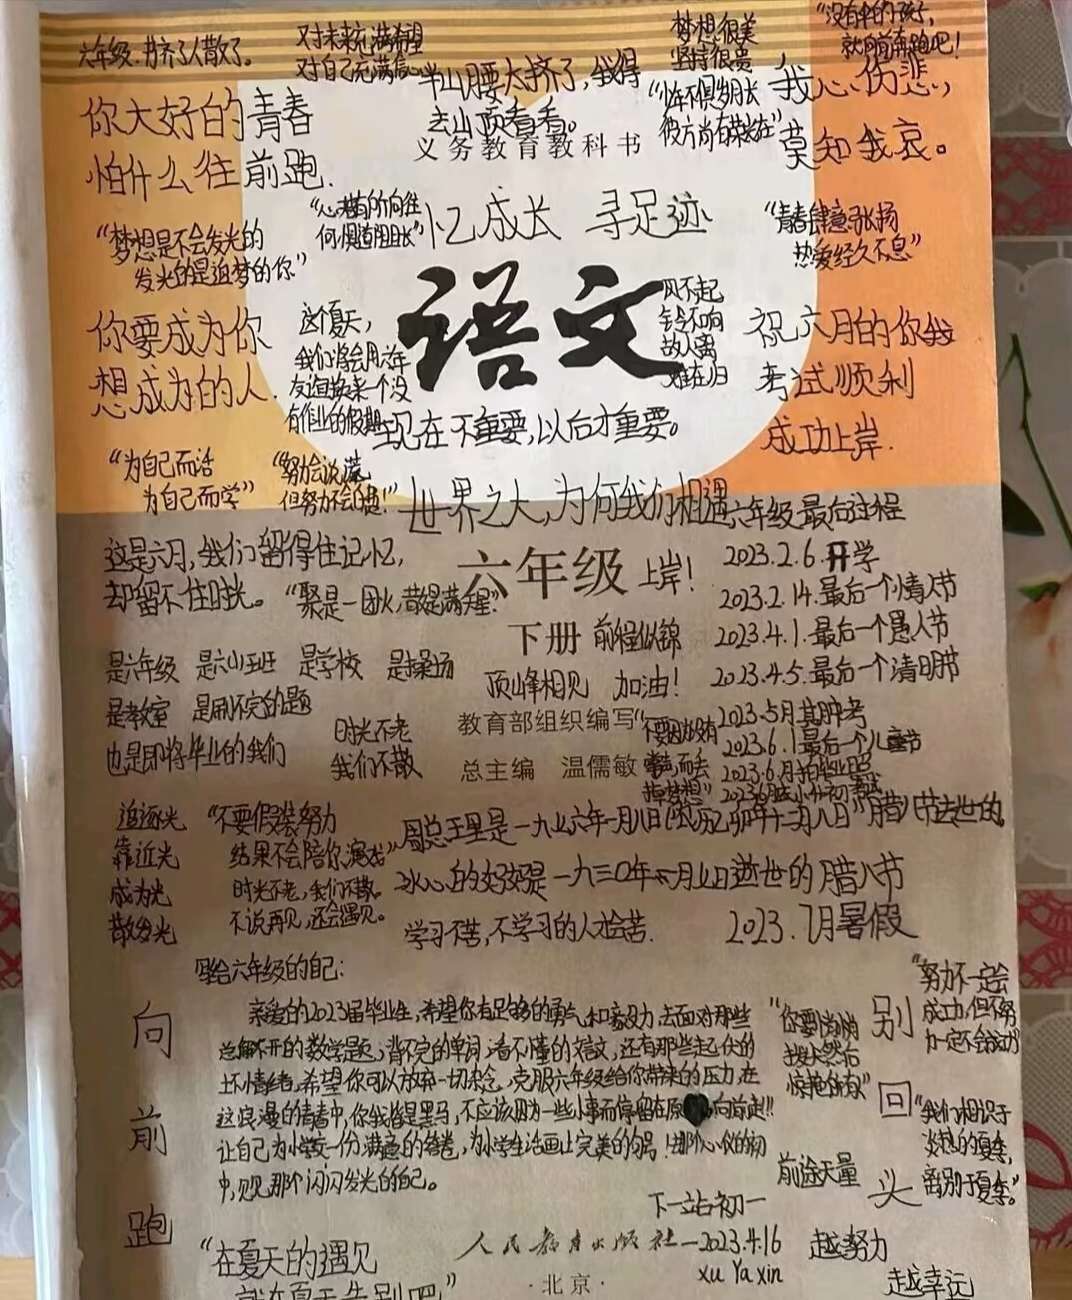 六年级,挤了人散了。
对未来充满希望
对自己充满信心
半山腰太挤了,我得
去山顶看看。
梦想很美
坚持很贵
"没有伞的孩子,
就向前奔跑吧!
你大好的青春
怕什么往前跑.
义务教育教科书
彼方尚有荣光在"
我心伤悲,
莫知我哀。
"心有所向往
何惧道阻且长"
忆成长 寻足迹
"青春肆意张扬
热爱经久不息"
"梦想是不会发光的
发光的是追梦的你"
语文
你要成为你
想成为的人.
这个夏天,
我们将会用六年
友谊换来一个没
有作业的假期
风不起
铃不响
故人离
难在归
祝六月的你我
考试顺利
成功上岸.
现在不重要,以后才重要。
"为自己而活
为自己而学"
"努力会说谎
但努力不会白费!"
世界之大,为何我们相遇
这是六月,我们留得住记忆,
却留不住时光。
"聚是一团火,散是满天星"
六年级
上岸!
下册
前程似锦
顶峰相见 加油!
六年级最后过程
2023.2.6.开学
2023.2.14.最后一个情人节
2023.4.1.最后一个愚人节
2023.4.5.最后一个清明节
2023.5月其肿考
2023.6.1最后一个儿童节
2023.6.月拍毕业照
是六年级 是学校 是操场
是教室 是刷不完的题
也是即将毕业的我们
时光不老
我们不散
教育部组织编写
总主编 温儒敏
追逐光
靠近光
成为光
散发光
"不要假装努力
结果不会陪你演戏"
时光不老,我们不散。
不说再见,还会遇见。
学习不苦,不学习的人才会苦.
2023.7月暑假
写给六年级的自己:
亲爱的2023届毕业生,希望你有足够的勇气和毅力,去面对那些
总解不开的数学题,背不完的单词,看不懂的语文,还有那些起伏的
坏情绪,希望你可以放弃一切杂念,克服六年级给你带来的压力,在
这浪漫的青春中,你我皆是黑马,不应该因为一些小事而停留在原
向前走!!
让自己为小学交一份满意的答卷,为小学生活画上完美的句号!
中,见见那个闪闪发光的自己。
向前跑
别回头
"你要悄悄
拔尖然后
惊艳所有"
"努力不一定会
成功,但不努
力一定不会成功"
"我们相识于
炎热的夏季,
离别于夏季。"
前途无量
下一站初一
人民教育出版社
—2023.4.16
Xu Ya xin
越努力
越幸运
"在夏天的遇见
就在夏天告别吧"
·北京·